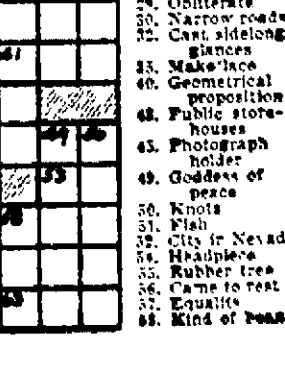 29. Obliterate
30. Narrow roads
32. Cast sidelong
glances
35. Make lace
40. Geometrical
proposition
43. Public store-
houses
45. Photograph
holder
49. Goddess of
peace
50. Knots
51. Fish
52. City in Nevad
54. Headpiece
55. Rubber tree
56. Came to rest
57. Equality
58. Kind of
41
53